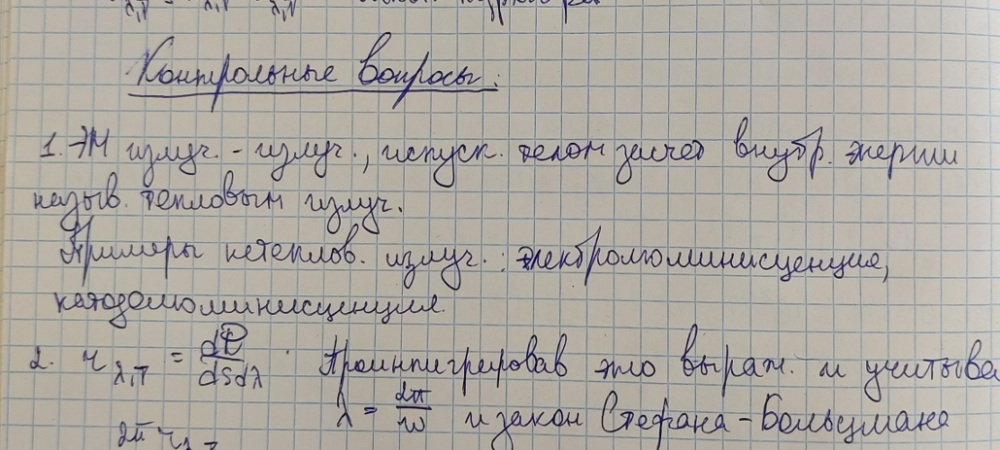 Контрольные вопросы:
1. ЭМ излуч. - излуч., испуск. телом засчет внутр. энергии
назыв. тепловым излуч.
Примеры нетеплов. излуч.: электролюминисценция,
катодолюминисценция.
2. r λ,T = dФ/dSdλ. Проинтегрировав это выраж. и учитыва
λ = 2π/ω и закон Стефана-Больцмана